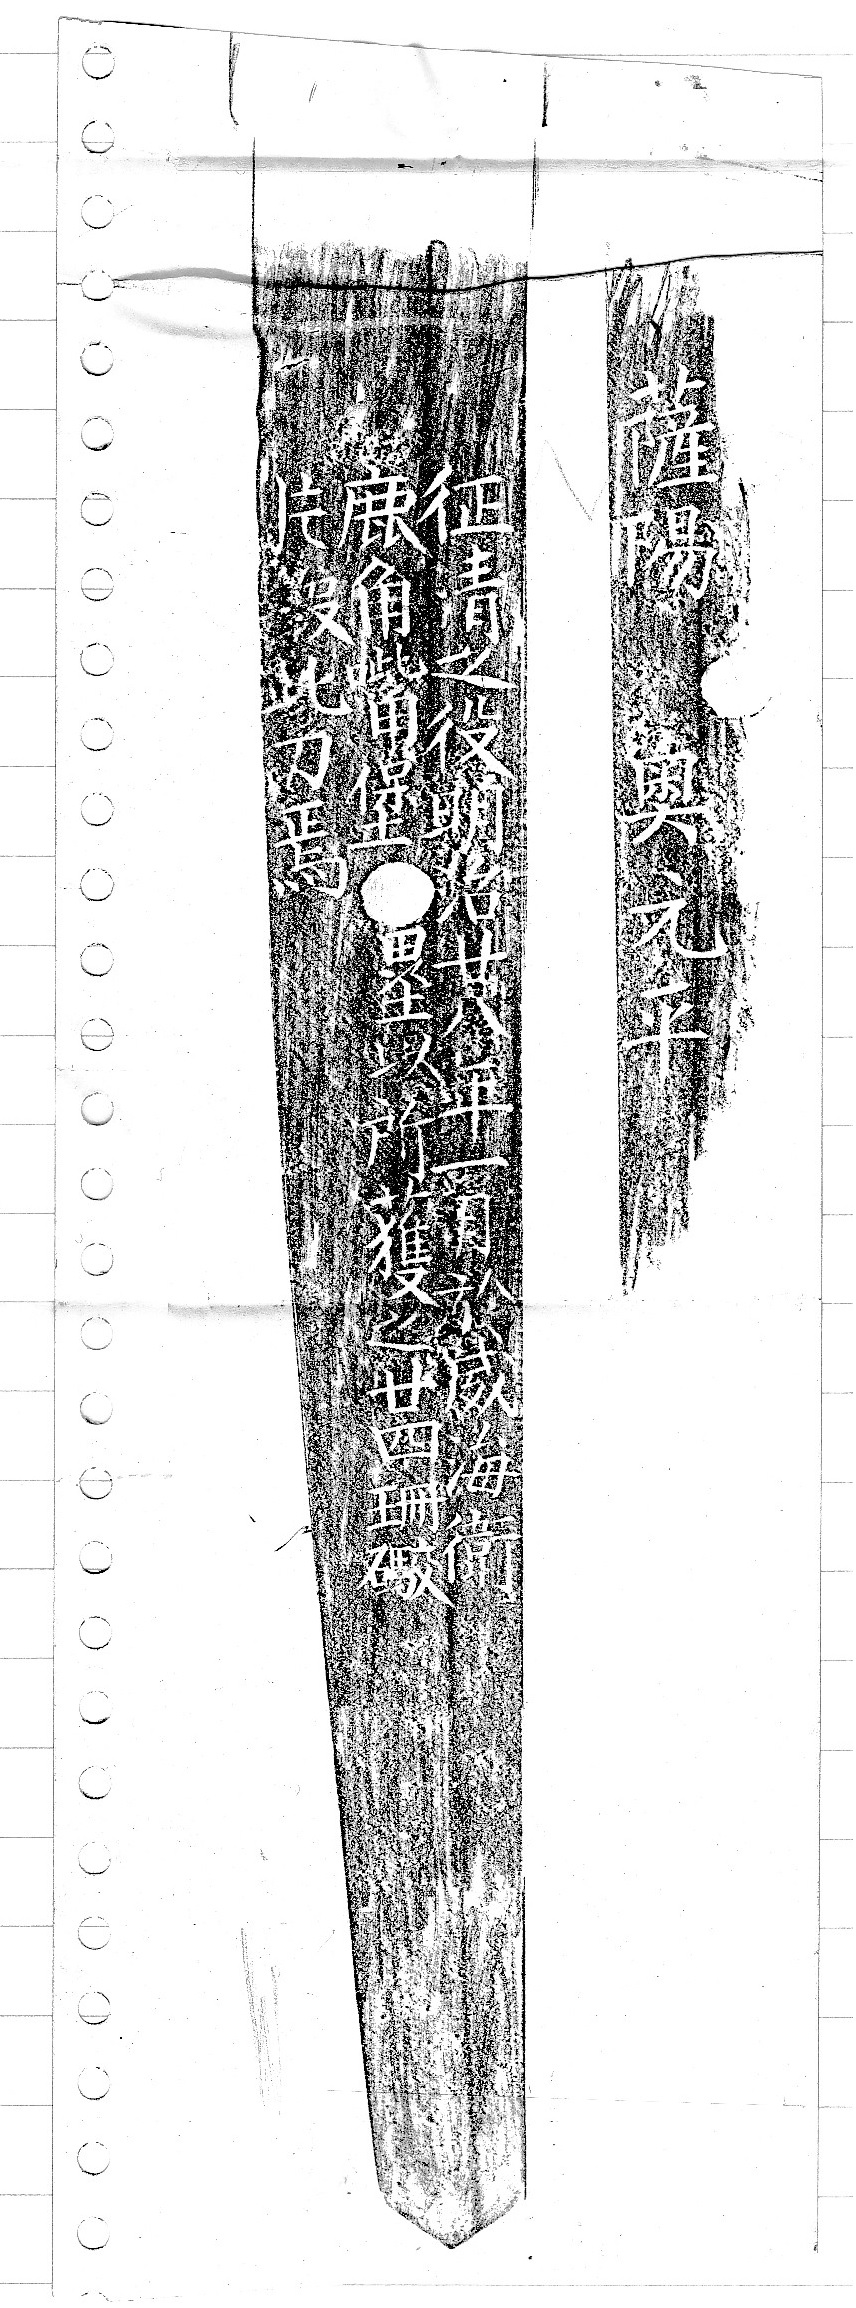 薩陽 奥元平
征清之役明治廿八年一月於威海衛
鹿角嘴堡塁以所獲之廿四珊礮
片段此刀焉